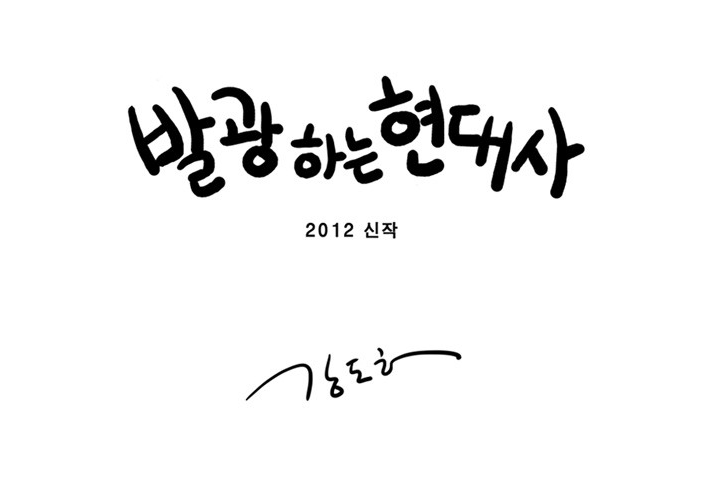 발광하는 현대사
2012 신작
강도하